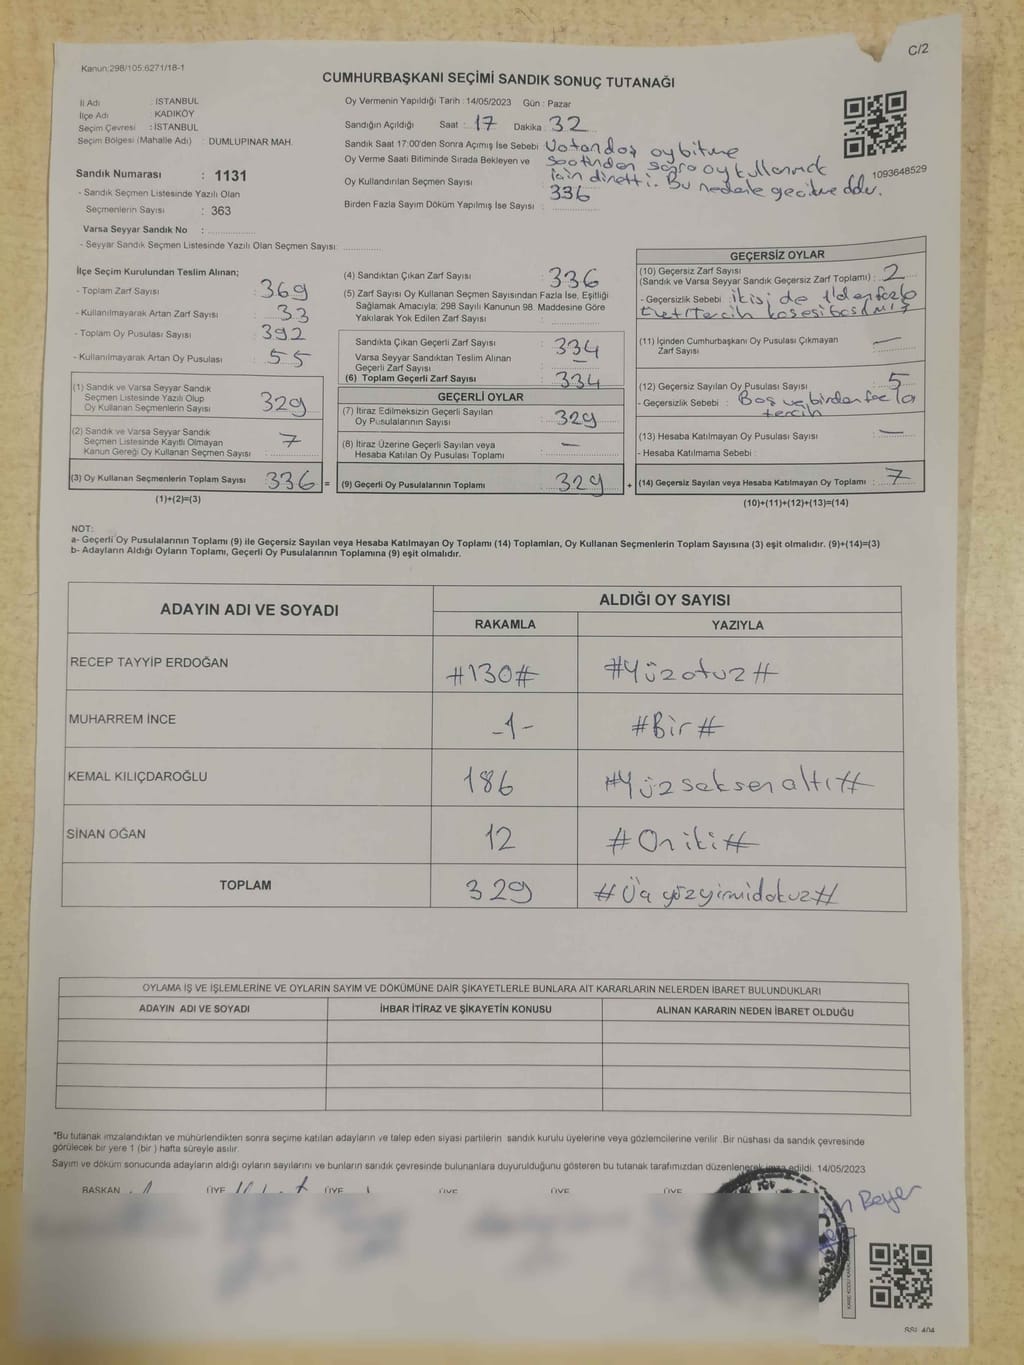 C/2
Kanun:298/105:6271/18-1
CUMHURBAŞKANI SEÇİMİ SANDIK SONUÇ TUTANAĞI
İl Adı : İSTANBUL
İlçe Adı : KADIKÖY
Seçim Çevresi : İSTANBUL
Seçim Bölgesi (Mahalle Adı) : DUMLUPINAR MAH.
Sandık Numarası : 1131
- Sandık Seçmen Listesinde Yazılı Olan
Seçmenlerin Sayısı : 363
Varsa Seyyar Sandık No :
- Seyyar Sandık Seçmen Listesinde Yazılı Olan Seçmen Sayısı:
Oy Vermenin Yapıldığı Tarih : 14/05/2023 Gün : Pazar
Sandığın Açıldığı Saat : 17 Dakika : 32
Sandık Saat 17:00'den Sonra Açımış İse Sebebi : Vatandaş oy bitme
Oy Verme Saati Bitiminde Sırada Bekleyen ve saatinden sonra oy kullanmak
için diretti. Bu nedenle gecikme oldu.
Oy Kullandırılan Seçmen Sayısı : 336
Birden Fazla Sayım Döküm Yapılmış İse Sayısı :
1093648529
İlçe Seçim Kurulundan Teslim Alınan;
- Toplam Zarf Sayısı : 369
- Kullanılmayarak Artan Zarf Sayısı : 33
- Toplam Oy Pusulası Sayısı : 392
- Kullanılmayarak Artan Oy Pusulası : 55
(1) Sandık ve Varsa Seyyar Sandık
Seçmen Listesinde Yazılı Olup
Oy Kullanan Seçmenlerin Sayısı : 329
(2) Sandık ve Varsa Seyyar Sandık
Seçmen Listesinde Kayıtlı Olmayan
Kanun Gereği Oy Kullanan Seçmen Sayısı : 7
(3) Oy Kullanan Seçmenlerin Toplam Sayısı : 336 =
(1)+(2)=(3)
(4) Sandıktan Çıkan Zarf Sayısı : 336
(5) Zarf Sayısı Oy Kullanan Seçmen Sayısından Fazla İse, Eşitliği
Sağlamak Amacıyla; 298 Sayılı Kanunun 98. Maddesine Göre
Yakılarak Yok Edilen Zarf Sayısı :
Sandıkta Çıkan Geçerli Zarf Sayısı : 334
Varsa Seyyar Sandıktan Teslim Alınan
Geçerli Zarf Sayısı : –
(6) Toplam Geçerli Zarf Sayısı : 334
GEÇERLİ OYLAR
(7) İtiraz Edilmeksizin Geçerli Sayılan
Oy Pusulalarının Sayısı : 329
(8) İtiraz Üzerine Geçerli Sayılan veya
Hesaba Katılan Oy Pusulası Toplamı : —
(9) Geçerli Oy Pusulalarının Toplamı : 329 +
GEÇERSİZ OYLAR
(10) Geçersiz Zarf Sayısı
(Sandık ve Varsa Seyyar Sandık Geçersiz Zarf Toplamı) : 2
- Geçersizlik Sebebi : ikisi de 1'den fazla
Evet/Tercih kaşesi basılmış
(11) İçinden Cumhurbaşkanı Oy Pusulası Çıkmayan
Zarf Sayısı : —
(12) Geçersiz Sayılan Oy Pusulası Sayısı : 5
- Geçersizlik Sebebi : Boş ve birden fazla
tercih
(13) Hesaba Katılmayan Oy Pusulası Sayısı : —
- Hesaba Katılmama Sebebi :
(14) Geçersiz Sayılan veya Hesaba Katılmayan Oy Toplamı : 7
(10)+(11)+(12)+(13)=(14)
NOT:
a- Geçerli Oy Pusulalarının Toplamı (9) ile Geçersiz Sayılan veya Hesaba Katılmayan Oy Toplamı (14) Toplamları, Oy Kullanan Seçmenlerin Toplam Sayısına (3) eşit olmalıdır. (9)+(14)=(3)
b- Adayların Aldığı Oyların Toplamı, Geçerli Oy Pusulalarının Toplamına (9) eşit olmalıdır.
ADAYIN ADI VE SOYADI ALDIĞI OY SAYISI
RAKAMLA YAZIYLA
RECEP TAYYİP ERDOĞAN #130# #Yüzotuz#
MUHARREM İNCE -1- #Bir#
KEMAL KILIÇDAROĞLU 186 #Yüzseksenaltı#
SİNAN OĞAN 12 #Oniki#
TOPLAM 329 #Üçyüzyirmidokuz#
OYLAMA İŞ VE İŞLEMLERİNE VE OYLARIN SAYIM VE DÖKÜMÜNE DAİR ŞİKAYETLERLE BUNLARA AİT KARARLARIN NELERDEN İBARET BULUNDUKLARI
ADAYIN ADI VE SOYADI İHBAR İTİRAZ VE ŞİKAYETİN KONUSU ALINAN KARARIN NEDEN İBARET OLDUĞU
*Bu tutanak imzalandıktan ve mühürlendikten sonra seçime katılan adayların ve talep eden siyasi partilerin sandık kurulu üyelerine veya gözlemcilerine verilir. Bir nüshası da sandık çevresinde
görülecek bir yere 1 (bir) hafta süreyle asılır.
Sayım ve döküm sonucunda adayların aldığı oyların sayılarını ve bunların sandık çevresinde bulunanlara duyurulduğunu gösteren bu tutanak tarafımızdan düzenlenerek imza edildi. 14/05/2023
BAŞKAN ÜYE ÜYE ÜYE ÜYE ÜYE
Beyer